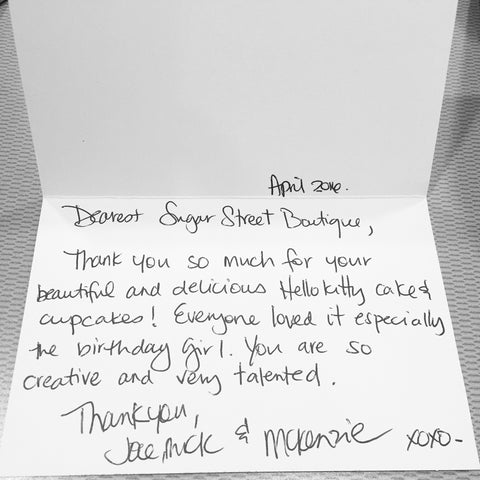 April 2016.
Dearest Sugar Street Boutique,
Thank you so much for your
beautiful and delicious Hello kitty cake &
cupcakes! Everyone loved it especially
the birthday girl. You are so
creative and very talented.
Thank you,
& McKenzie xoxo-